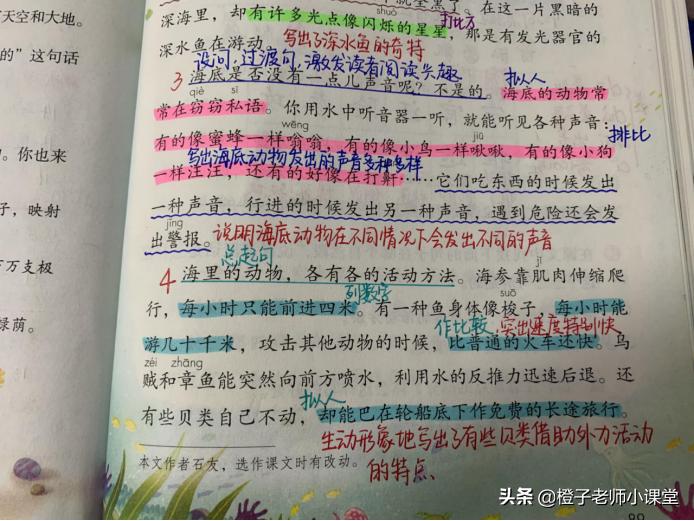 天空和大地。
的”这句话
。你也来
子，映射
万支极
绿荫。
就全黑了。在这一片黑暗的
shuò
深海里，却有许多光点像闪烁的星星，那是有发光器官的
打比方
深水鱼在游动。
写出了深水鱼的奇特
设问，过渡句，激发读者阅读兴趣
3 海底是否没有一点儿声音呢？不是的。海底的动物常
拟人
qiè sī
常在窃窃私语。你用水中听音器一听，就能听见各种声音：
wēng jiū
有的像蜜蜂一样嗡嗡，有的像小鸟一样啾啾，有的像小狗
排比
写出海底动物发出的声音多种多样
一样汪汪，还有的好像在打鼾……它们吃东西的时候发出
一种声音，行进的时候发出另一种声音，遇到危险还会发
jǐng
出警报。
说明海底动物在不同情况下会发出不同的声音
总起句
4 海里的动物，各有各的活动方法。海参靠肌肉伸缩爬
jī
列数字
行，每小时只能前进四米。有一种鱼身体像梭子，每小时能
suō
作比较，突出速度特别快
游几十千米，攻击其他动物的时候，比普通的火车还快。乌
zéi zhāng
贼和章鱼能突然向前方喷水，利用水的反推力迅速后退。还
拟人
有些贝类自己不动，却能巴在轮船底下作免费的长途旅行。
生动形象地写出了有些贝类借助外力活动
的特点、
本文作者石友，选作课文时有改动。
头条 @橙子老师小课堂